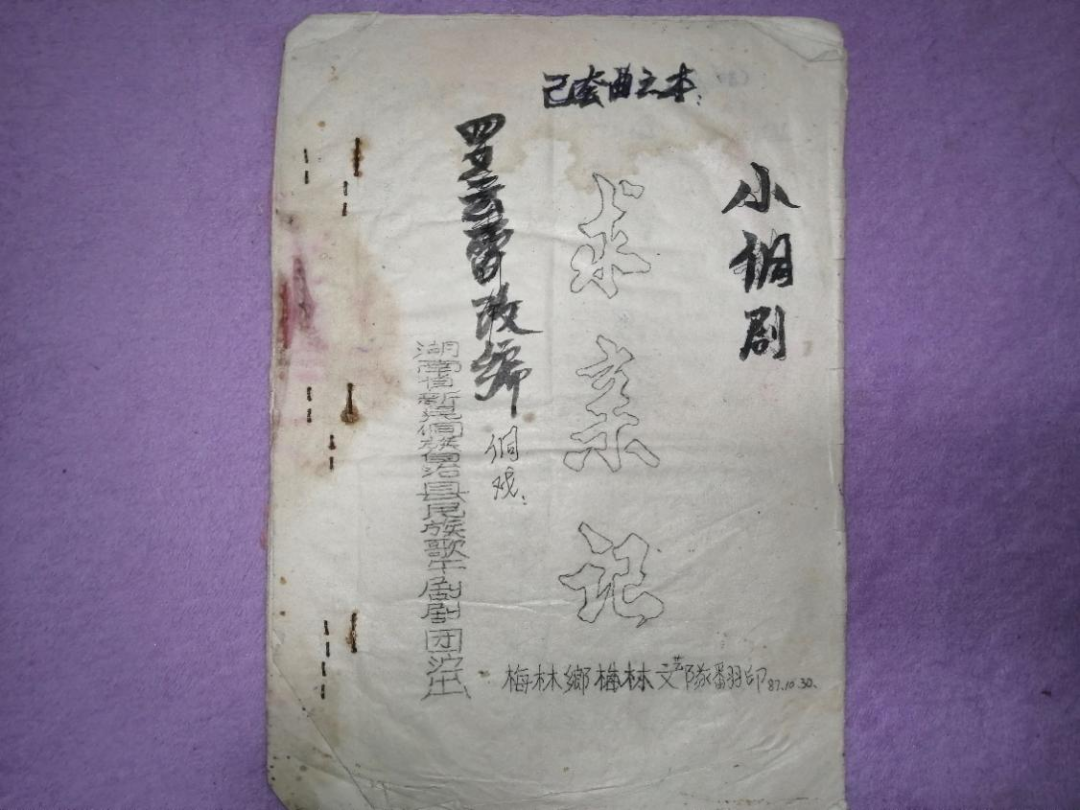 已套曲之本:
小侗剧
求亲记
罗云改编
侗戏:
湖南省新晃侗族自治县民族歌午剧剧团演出
梅林鄉梅林文艺隊翻印87.10.30.